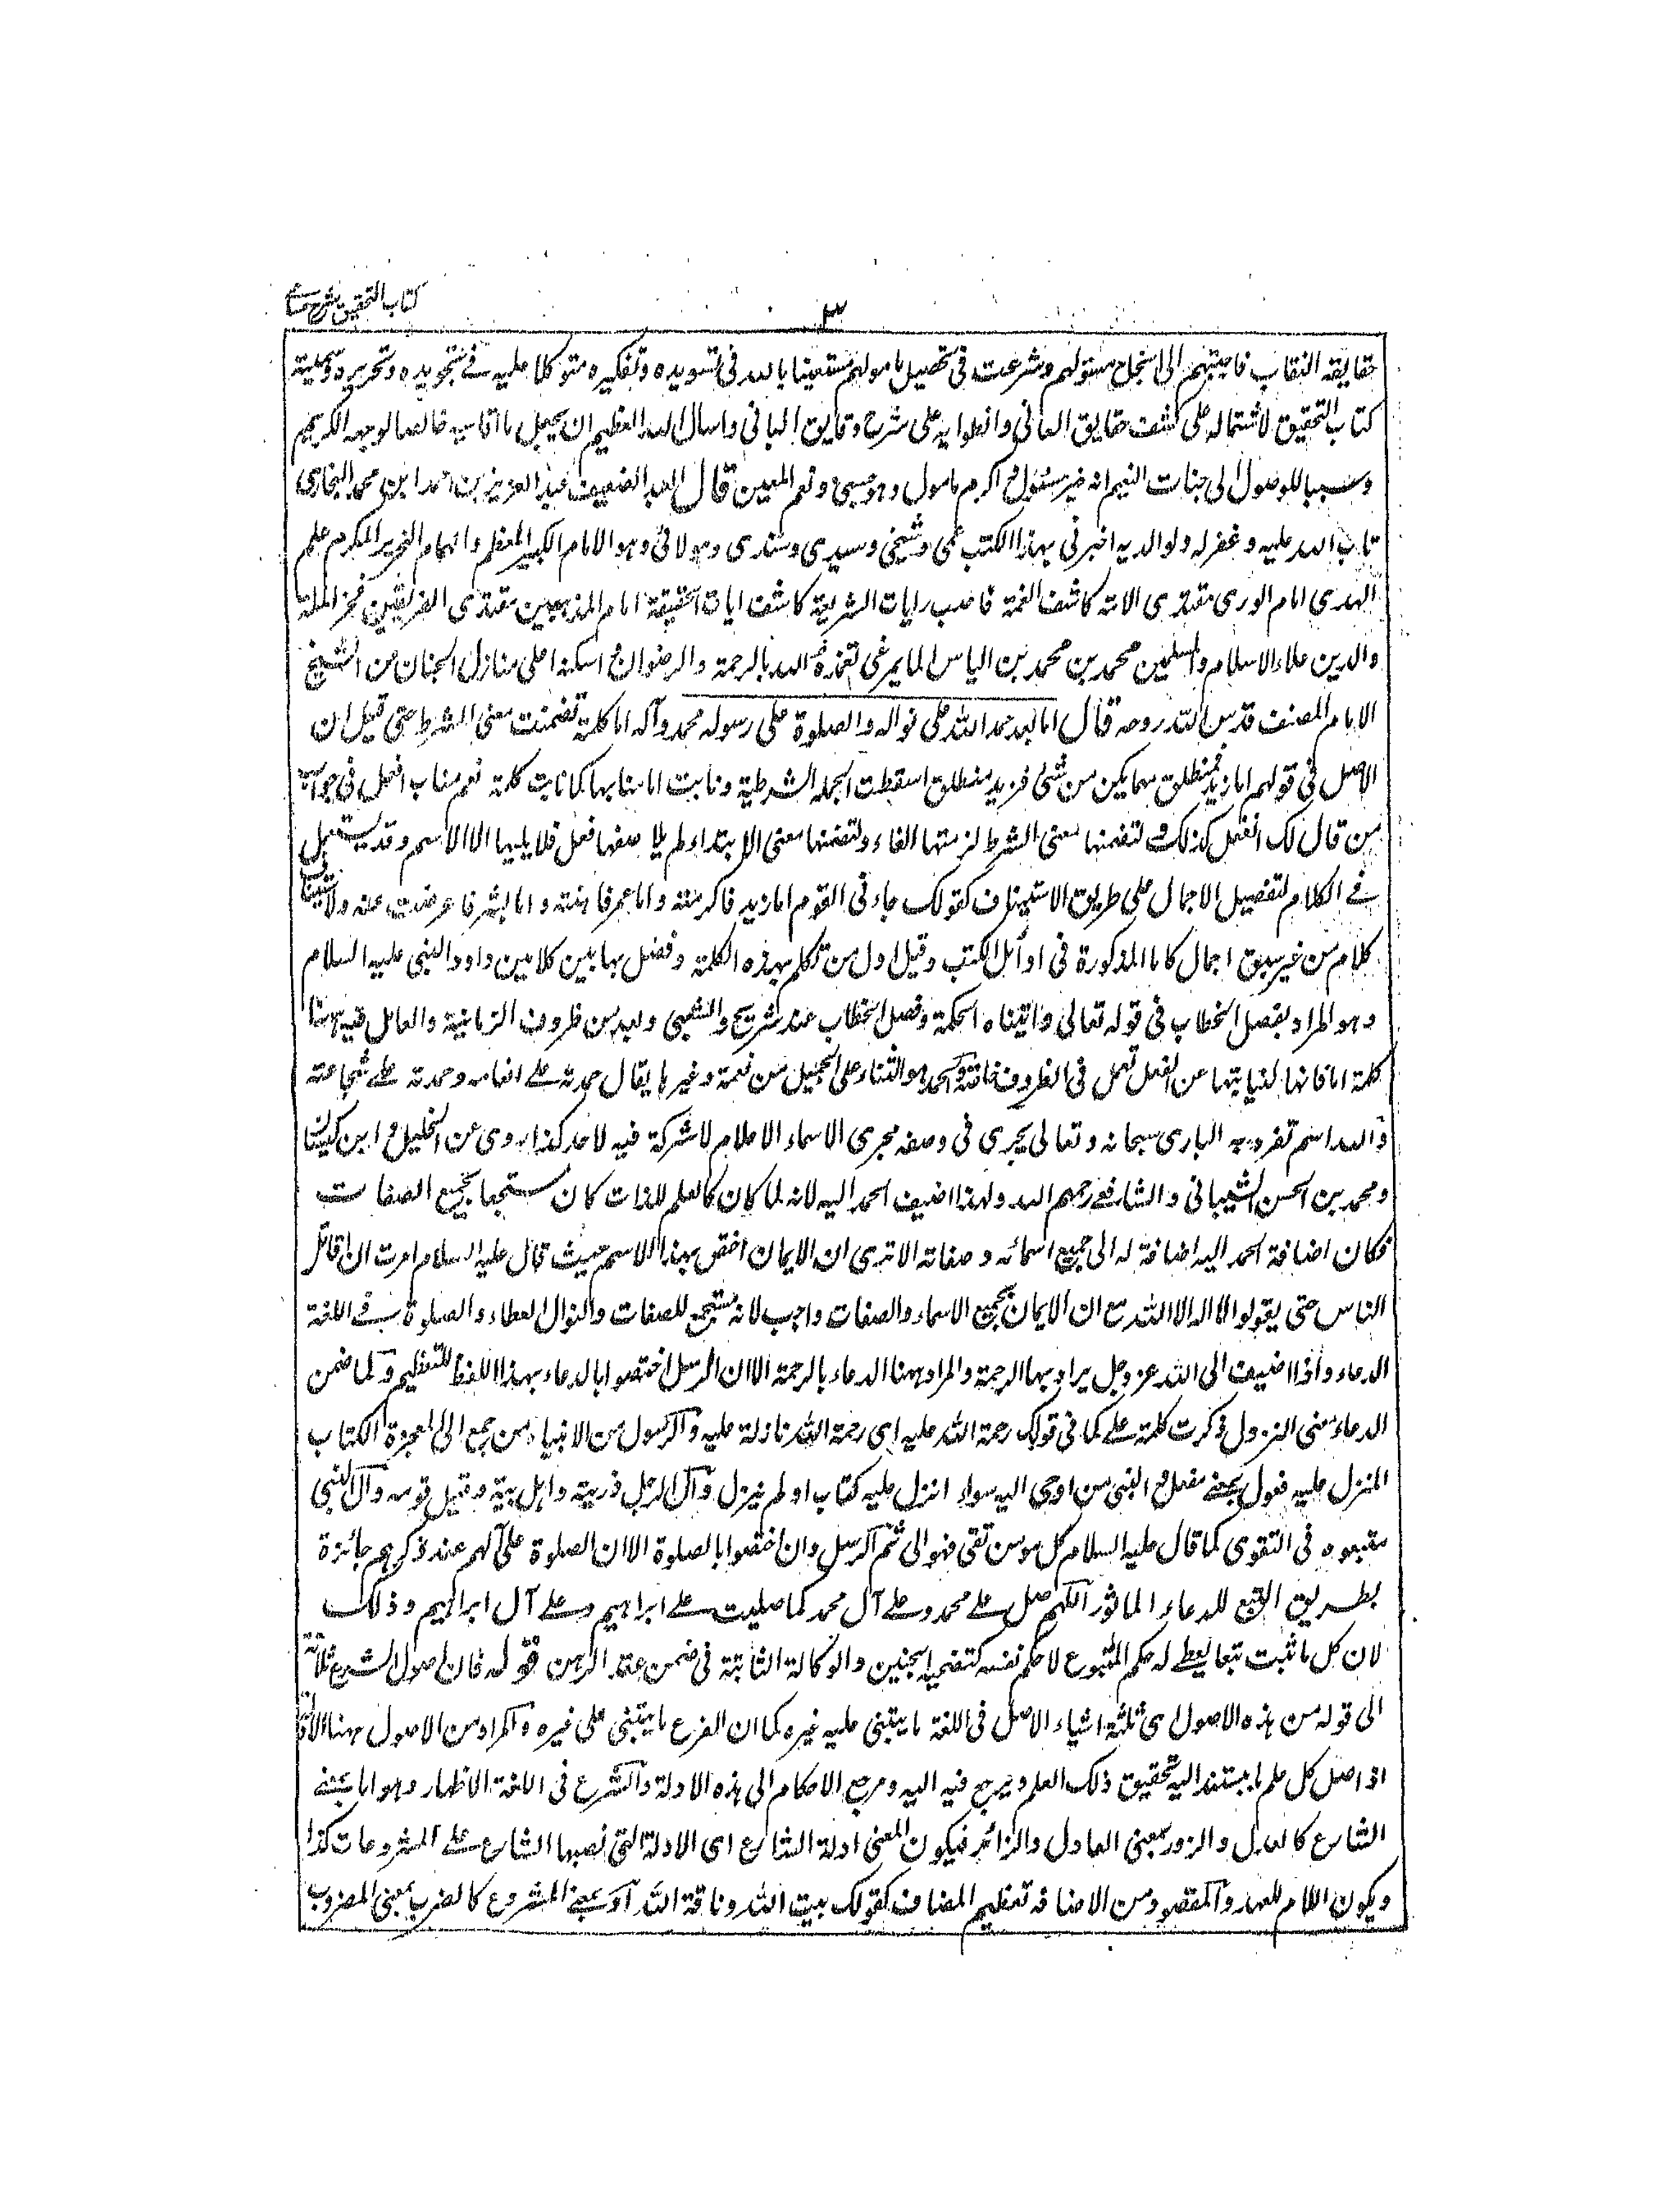 ٣
كتاب التحقيق شرح حسامي
حقايقه النقاب فاجبتهم الى استنجاح مسئولهم وشرعت فى تحصيل مامولهم مستعينا بالله فى تسويده وتفكيره متوكلا عليه فے تجويده وتحريره وسميته
كتاب التحقيق لاشتماله على كشف حقايق المعانى وانطوايه على شرح دقايق المبانى واسال الله العظيم ان يجعل ما اقاسيه خالصا لوجهه الكريم
وسببا للوصول الى جنات النعيم انه خير مسئول واكرم مامول وهو حسبى ونعم المعين قال العبد الضعيف عبد العزيز بن احمد ابن محمد البخارى
تاب الله عليه وغفر له ولوالديه اخبرنى بهذا الكتب عمى وشيخى وسيدى وسندى ومولائى وهو الامام الكبير المعظم والهمام النحرير المكرم علم
الهدى امام الورى مقتدى الامة كاشف الغمة ناصب رايات الشريعة كاشف ايات الحقيقة امام المذهبين مقتدى الفريقين فخر الملة
والدين علاء الاسلام والمسلمين محمد بن محمد بن الياس المايمرغى تغمده الله بالرحمة والرضوان واسكنه اعلى منازل الجنان عن الشيخ
الامام المصنف قدس الله روحه قال اما بعد حمد الله على نواله والصلوة على رسوله محمد وآله اما كلمة تضمنت معنى الشرط حتى قيل ان
الاصل فى قولهم اما زيد فمنطلق مهما يكن من شئ فزيد منطلق اسقطت الجملة الشرطية ونابت اما منابها كما نابت كلمة نعم مناب افعل فى جواب
من قال لك افعل كذلك ولتضمنها معنى الشرط لزمتها الفاء ولتضمنها معنى الابتداء لم يلاصقها فعل فلا يليها الا الاسم وقد يستعمل
فے الكلام لتفصيل الاجمال على طريق الاستيناف كقولك جاءنى القوم اما زيد فاكرمته واما عمر فاهنته واما بشر فاعرضت عنه ولاستيناف
كلام من غير سبق اجمال كاما المذكورة فى اوائل الكتب وقيل اول من تكلم بهذه الكلمة وفصل بها بين كلامين داود النبى عليه السلام
وهو المراد بفصل الخطاب فى قوله تعالى واتيناه الحكمة وفصل الخطاب عند شريح والشعبى وبعد من ظروف الزمانية والعامل فيه ههنا
كلمة اما فانها لنيابتها عن الفعل تعمل فى الظروف خاصة والحمد هو الثناء على الجميل من نعمة وغيرها يقال حمدته على انعامه وحمدته على شجاعته
والله اسم تفرد به البارى سبحانه وتعالى يجرى فى وصفه مجرى الاسماء الاعلام لا شركة فيه لاحد كذا روى عن الخليل وابن كيسان
ومحمد بن الحسن الشيبانى والشافعى رحمهم الله ولهذا اضيف الحمد اليه لانه لما كان كالعلم للذات كان مستجمعا بجميع الصفات
فكان اضافة الحمد اليه اضافة له الى جميع اسمائه وصفاته الا ترى ان الايمان اختص بهذا الاسم حيث قال عليه السلام امرت ان اقاتل
الناس حتى يقولوا لا اله الا الله مع ان الايمان بجميع الاسماء والصفات واجب لانه مستجمع للصفات والنوال العطاء والصلوة فے اللغة
الدعاء واذا اضيف الى الله عز وجل يراد بها الرحمة والمراد ههنا الدعاء بالرحمة الا ان الرسل اختصوا بالدعاء بهذا اللفظ للتعظيم ولما ضمن
الدعاء معنى النزول ذكرت كلمة على كما فى قولك رحمة الله عليه اى رحمة الله نازلة عليه والرسول من الانبياء من جمع الى المعجزة الكتاب
المنزل عليه فعول بمعنے مفعل والنبى من اوحى اليه سواء انزل عليه كتاب او لم ينزل وآل الرجل ذريته واهل بيته وقيل قومه وآل النبى
متبعوه فى التقوى كما قال عليه السلام كل مومن تقى فهو الى ثم الرسل وان اختصوا بالصلوة الا ان الصلوة على آلهم عند ذكرهم جائزة
بطريق التبع للدعاء الماثور اللهم صل على محمد وعلى آل محمد كما صليت على ابراهيم وعلى آل ابراهيم وذلك
لان كل ما ثبت تبعا يعطے له حكم المتبوع لا حكم نفسه كتضحية الجنين والوكالة الثابتة فى ضمن عقد الرهن قوله فان اصول الشرع ثلاثة
الى قوله من هذه الاصول اى ثلثة اشياء الاصل فى اللغة ما يبتنى عليه غيره كما ان الفرع ما يبتنى على غيره والمراد من الاصول ههنا الادلة
اذ اصل كل علم ما يستند اليه تحقيق ذلك العلم ويرجع فيه اليه ومرجع الاحكام الى هذه الادلة والشرع فى اللغة الاظهار وهو اما بمعنے
الشارع كالعدل والزور بمعنى العادل والزائر فيكون المعنى ادلة الشارع اى الادلة التى نصبها الشارع على المشروعات كذا
ويكون اللام للعهد والمقصود من الاضافة تعظيم المضاف كقولك بيت الله وناقة الله او بمعنے المشروع كالضرب بمعنى المضروب